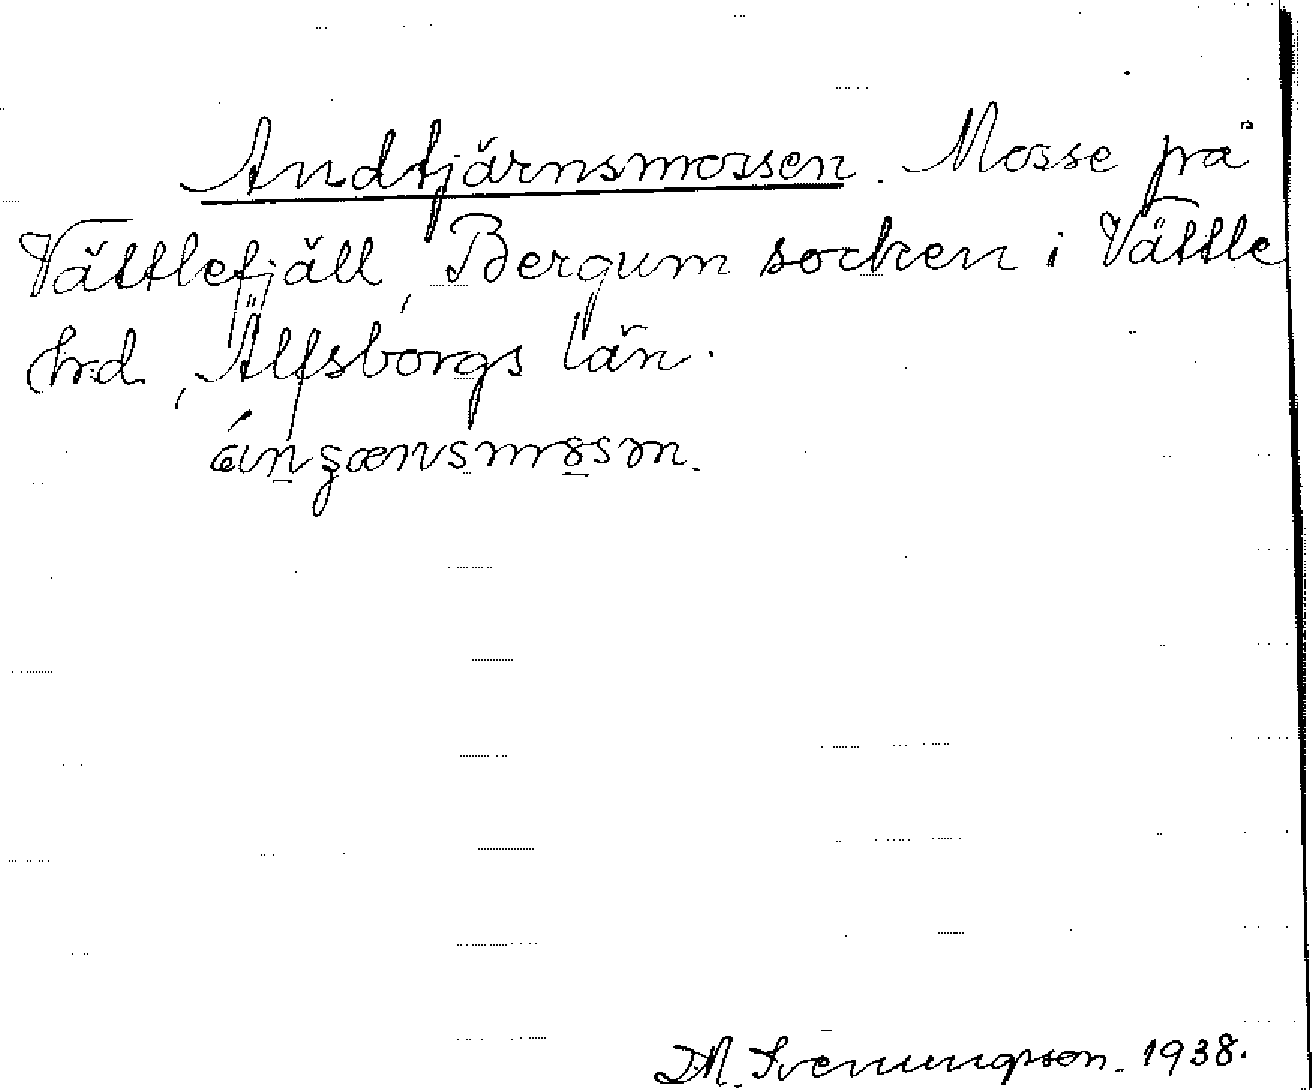 Andtjärnsmossen. Mosse på
Vättlefjäll, Bergum socken i Vättle
hrd, Älfsborgs län.
Svenungsson. 1938.